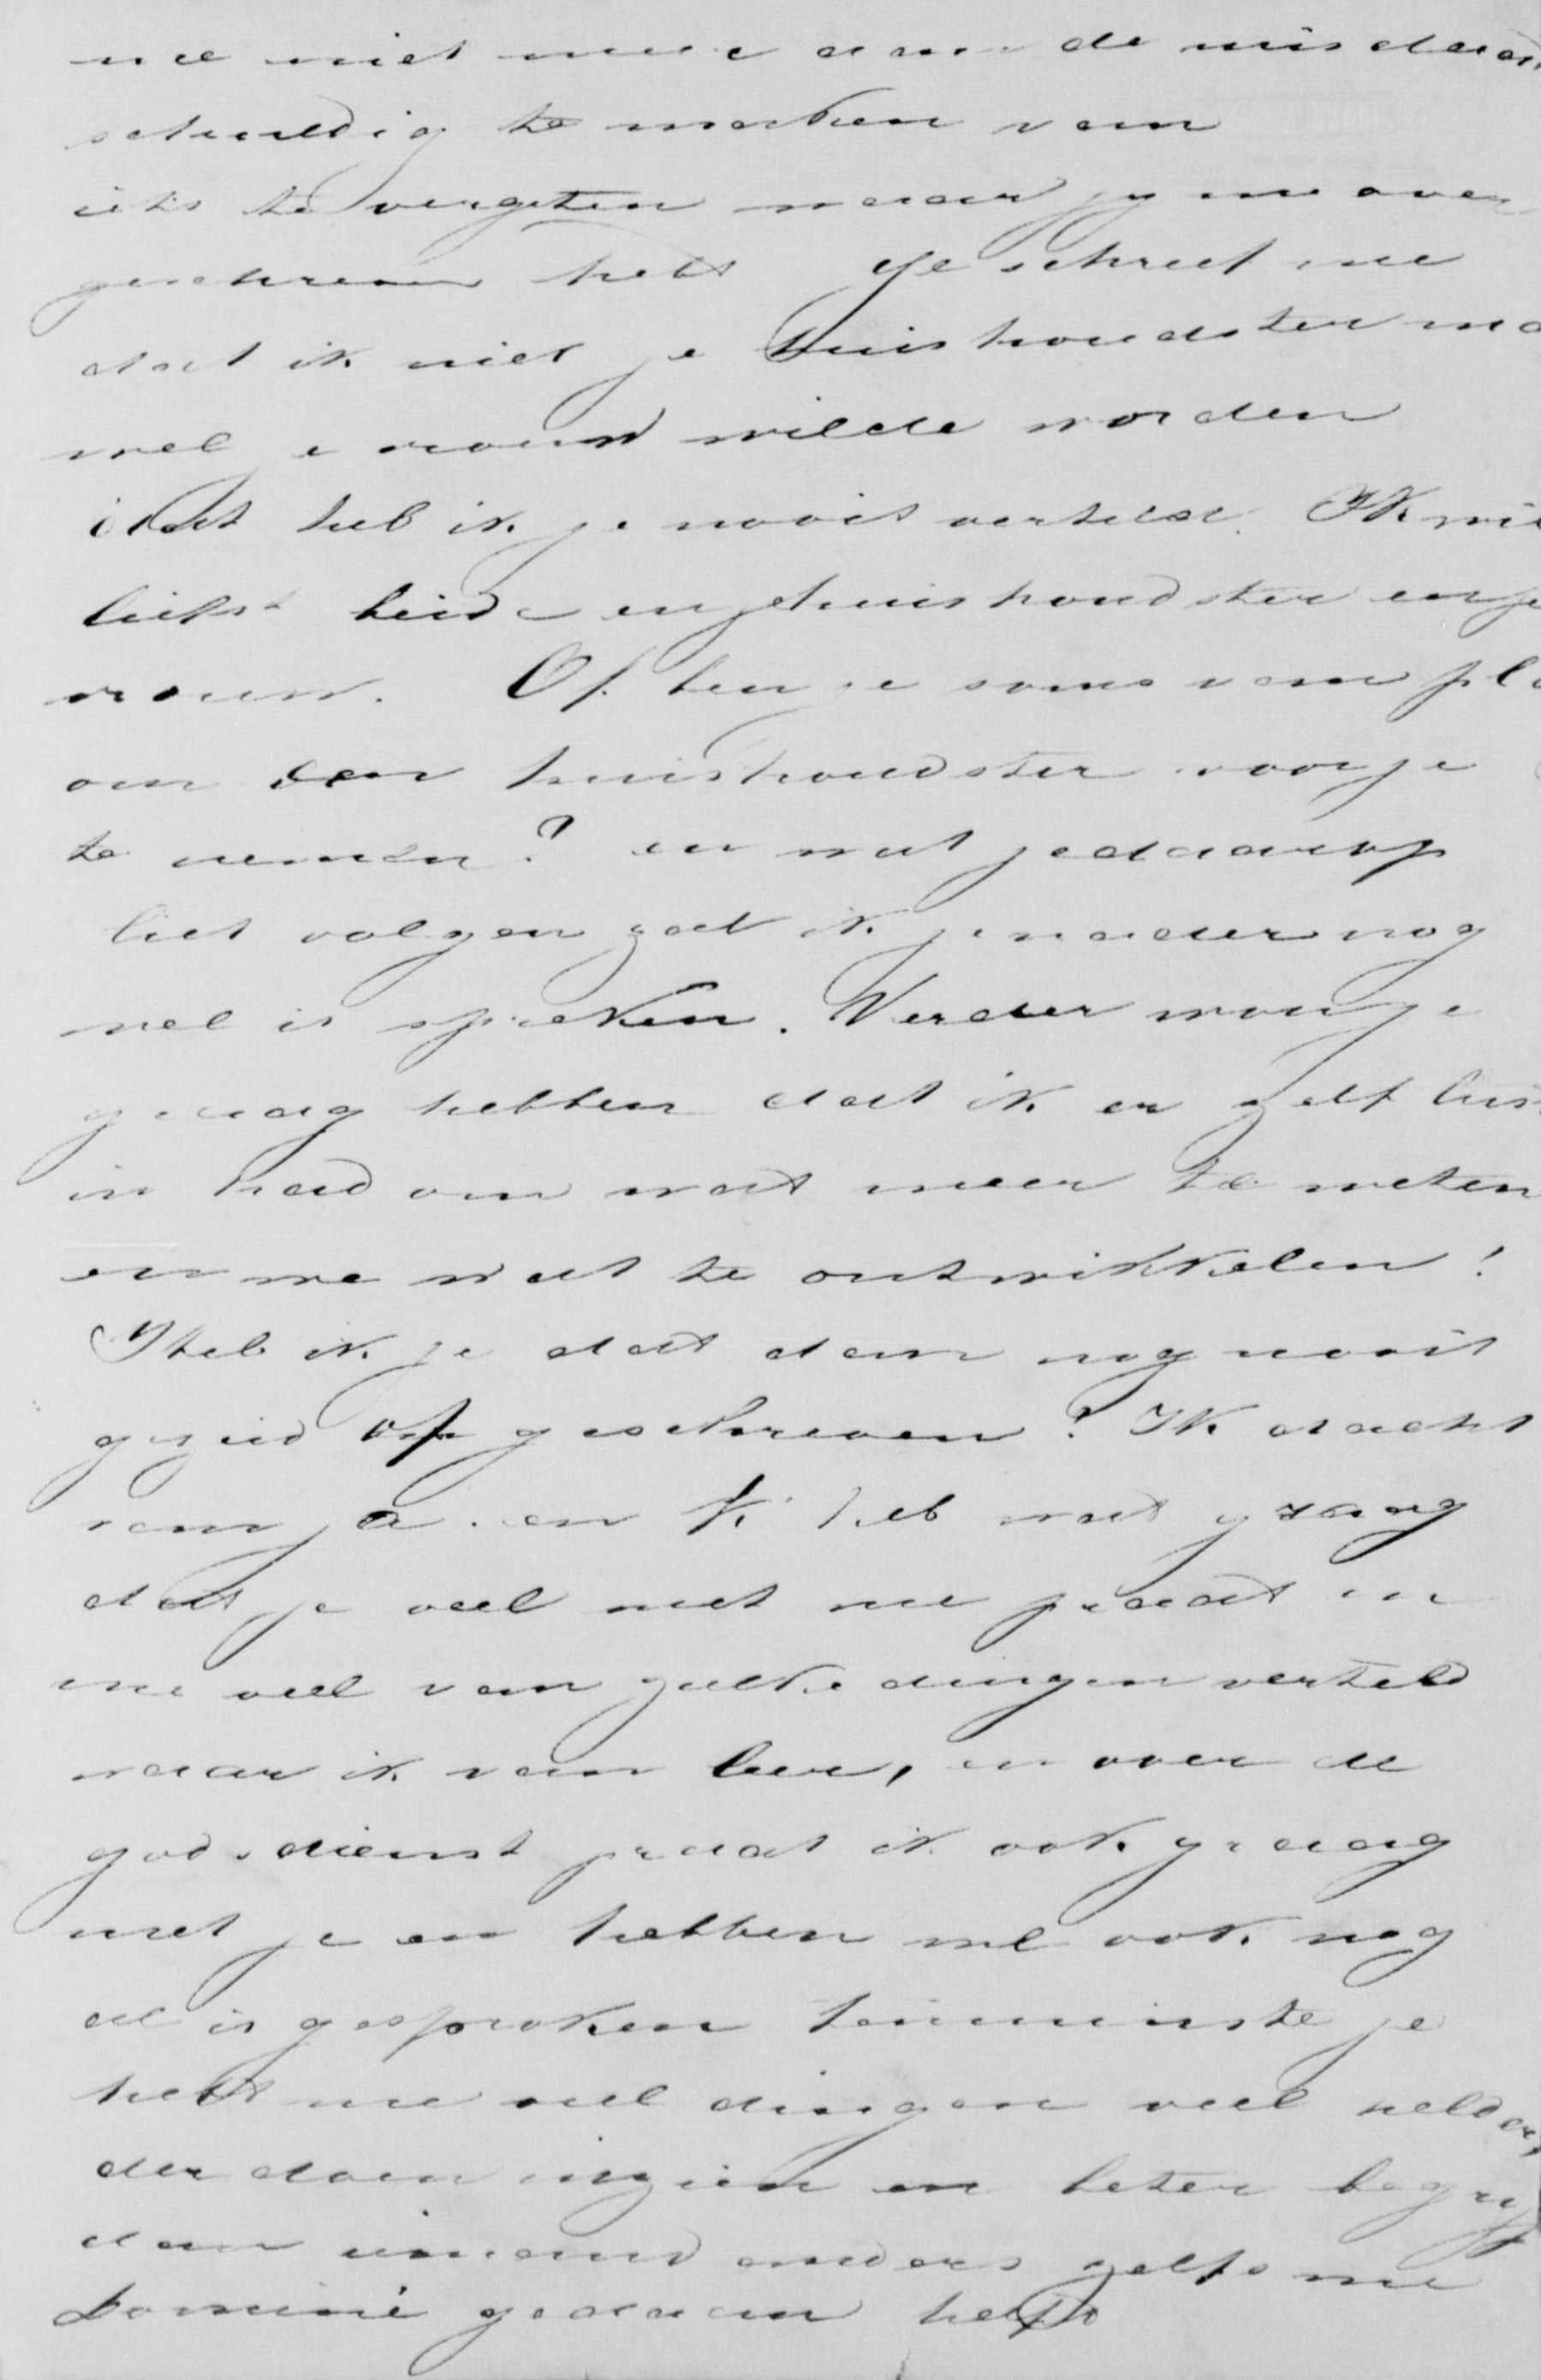 me niet meer aan de misdaad
schuldig te maken van
iets te vergeten waar jy me over
geschreven hebt Je schreef me
dat ik niet je huishoudster ma
wel je vrouw wilde worden
dat heb ik je nooit verteld. Ik wil
liefst beide en je huishoudster en je
vrouw. Of ben je soms van pla
om een huishoudster voor je
te nemen? en wat je daarop
liet volgen zal ik je nader nog
wel is spreken. Verder wou je
graag hebben dat ik er zelf lus
in had om wat meer te weten
en me wat te ontwikkelen!
Heb ik je dat dan nog nooit
gezeid of geschreven? Ik dacht
van ja. en k heb wat graag
dat je veel met me praat en
me veel van zulke dingen verteld
waar ik van leer, en over de
godsdienst praat ik ook graag
met je en hebben we ook nog
al is gesproken tenminste je
hebt me veel dingen veel helder
der doen inzien en beter begryp
dan iemand anders zelfs me
Dominé gedaan heeft